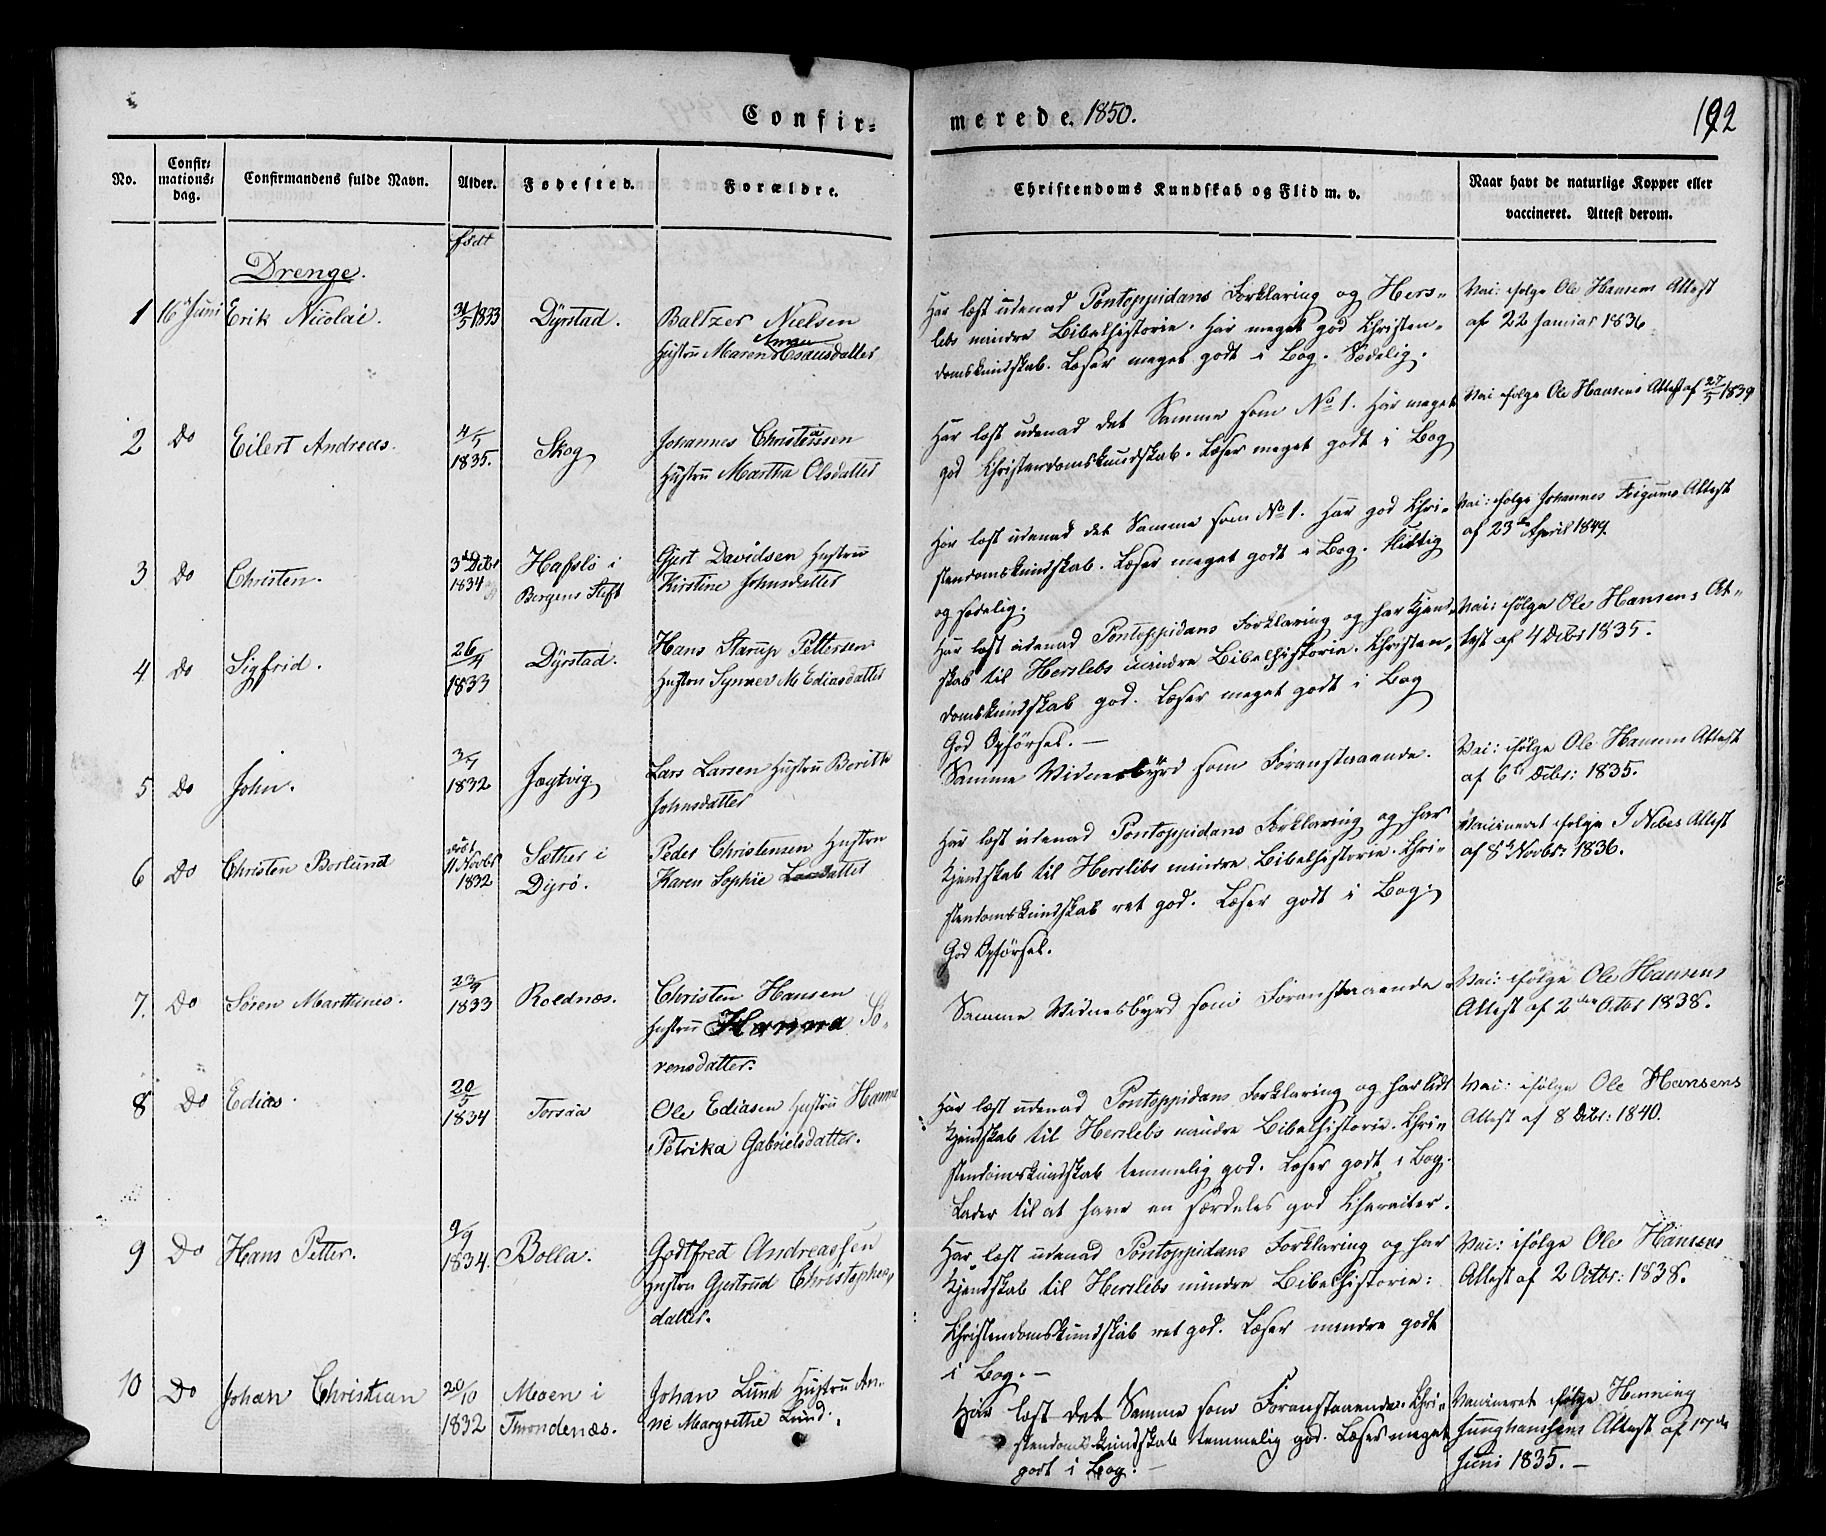 Confir=
merede. 1850.
192
No.
Confir=
mations=
dag.
Confirmandens fulde Navn.
Alder.
Fødested.
Forældre.
Christendoms Kundskab og Flid m. v.
Naar havt de naturlige Kopper eller
vaccineret. Attest derom.
født
Drenge.
1 16 Juni Erik Nicolai. 31/5 1833 Dyrstad. Baltzer Nielsen
Hustru Maren Anna Esausdatter
Har læst udenad Pontoppidans Forklaring og Hers-
lebs mindre Bibelhistorie. Har meget god Christen-
domskundskab. Læser meget godt i Bog. Sædelig.
Vac: ifølge Ole Hansens Attest
af 22 Januar 1836
2 Do Eilert Andreas. 4/1 1835. Skog Johannes Christiansen
Hustru Martha Olsdatter
Har læst udenad det Samme som No 1. Har meget
god Christendomskundskab. Læser meget godt i Bog
Vac ifølge Ole Hansens Attest af 27/5 1839
3 Do Christen. 3d Decbr 1834 Hafslo i
Bergens Stift
Gjert Davidsen Hustru
Kirstine Johnsdatter
Har læst udenad det Samme som No 1. Har god Chri-
stendomskundskab. Læser meget godt i Bog. Flittig
og sædelig.
Vac: ifølge Johannes Feigums Attest
af 23de April 1849.
4 Do Sigfrid. 26/4 1833 Dyrstad. Hans Starup Pettersen
Hustru Synner M Ediasdatter
Har læst udenad Pontoppidans Forklaring og har Kjend-
skab til Herslebs mindre Bibelhistorie. Christen-
domskundskab god. Læser meget godt i Bog
God Opførsel. —
Vac: ifølge Ole Hansens At-
test af 4 Decbr 1835.
5 Do John. 3/1 1832 Jægtvig Lars Larsen Hustru Berithe
Johnsdatter
Samme Vidnesbyrd som Foranstaaende.
Vac: ifølge Ole Hansens Attest
af 6te Decbr: 1835.
6 Do Christen Borlund 11 Novbr 1832 Sæther i
Dyrø.
Peder Christensen Hustru
Karen Sophie Larsdatter
Har læst udenad Pontoppidans Forklaring og har
Kjendskab til Herslebs mindre Bibelhistorie. Chri-
stendomskundskab ret god. Læser godt i Bog.
God Opførsel.
Vaccineret ifølge J Nebes Attest
af 8de Novbr: 1836.
7. Do Søren Marthines. 23/9 1833 Roldnæs. Christen Hansen
Hustru Hanna Sø-
rensdatter.
Samme Vidnesbyrd som Foranstaaende.
Vac: ifølge Ole Hansens
Attest af 2den Octbr 1838.
8 Do Edias. 20/5 1834 Torsaa Ole Ediasen Hustru Hanna
Petrika Gabrielsdatter.
Har læst udenad Pontoppidans Forklaring og har lidt
Kjendskab til Herslebs mindre Bibelhistorie. Chri-
stendomskundskab temmelig god. Læser godt i Bog.
Lader til at have en særdeles god Charakter.
Vac: ifølge Ole Hansens
Attest af 8 Decbr: 1840.
9 Do Hans Petter. 9/9 1834. Bolla. Godtfred Andreassen
Hustru Gjertrud Christopher-
datter.
Har læst udenad Pontoppidans Forklaring og har
Kjendskab til Herslebs mindre Bibelhistorie:
Christendomskundskab ret god. Læser mindre godt
i Bog. —
Vac: ifølge Ole Hansens
Attest af 2 Octbr: 1838.
10 Do Johan Christian 20/10 1832 Moen i
Throndenæs.
Johan Lund Hustru An-
ne Margrethe Lund.
Har læst det Samme som Foranstaaende. Chri-
stendomskundskab temmelig god. Læser meget
godt i Bog. —
Vaccineret ifølge Henning
Junghanssens Attest af 17de
Juni 1835. —